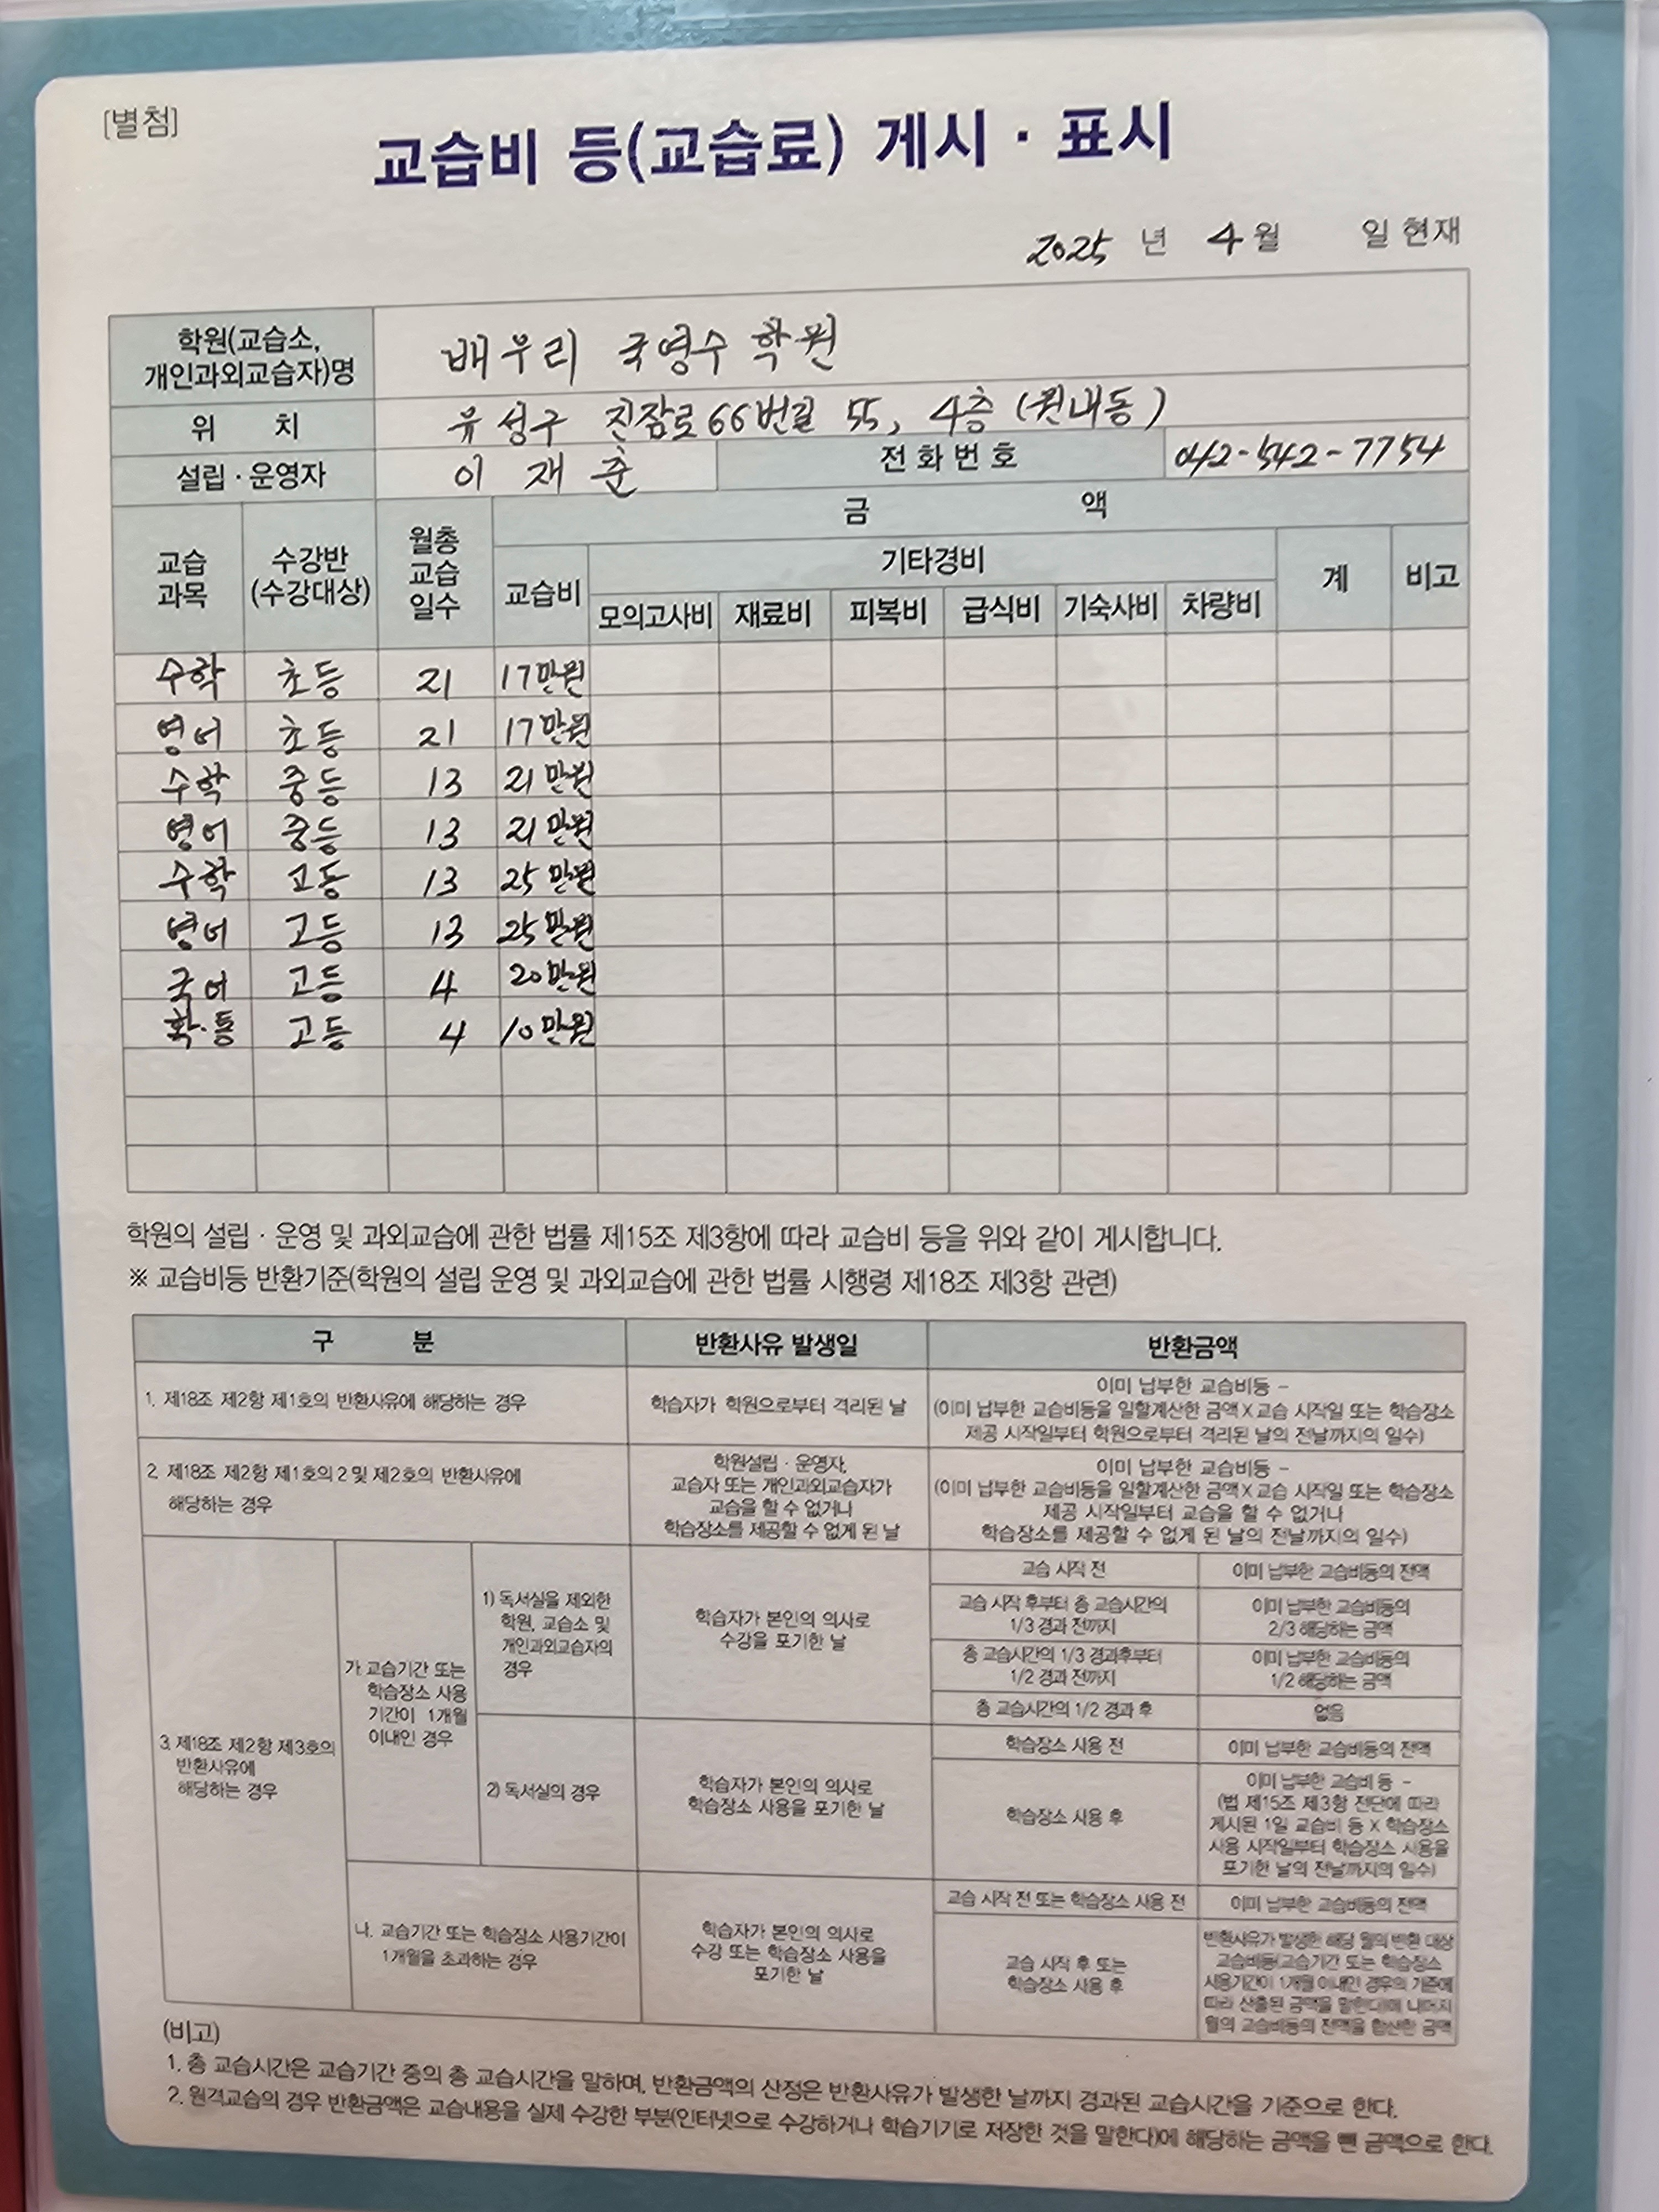 [별첨]
교습비 등(교습료) 게시 · 표시
2025 년 4월 일 현재
학원(교습소, 개인과외교습자)명 배우리 국영수 학원
위 치 유성구 진잠로66번길 55, 4층 (원내동)
설립 · 운영자 이 재 춘 전화번호 042-542-7754
교습 과목 수강반 (수강대상) 월총 교습 일수 금 액
교습비 기타경비 계 비고
모의고사비 재료비 피복비 급식비 기숙사비 차량비
수학 초등 21 17만원
영어 초등 21 17만원
수학 중등 13 21만원
영어 중등 13 21만원
수학 고등 13 25만원
영어 고등 13 25만원
국어 고등 4 20만원
확·통 고등 4 10만원
학원의 설립 · 운영 및 과외교습에 관한 법률 제15조 제3항에 따라 교습비 등을 위와 같이 게시합니다.
※ 교습비등 반환기준(학원의 설립 운영 및 과외교습에 관한 법률 시행령 제18조 제3항 관련)
구 분 반환사유 발생일 반환금액
1. 제18조 제2항 제1호의 반환사유에 해당하는 경우
학습자가 학원으로부터 격리된 날
이미 납부한 교습비등 -
(이미 납부한 교습비등을 일할계산한 금액X교습 시작일 또는 학습장소
제공 시작일부터 학원으로부터 격리된 날의 전날까지의 일수)
2. 제18조 제2항 제1호의 2 및 제2호의 반환사유에
해당하는 경우
학원설립 · 운영자,
교습자 또는 개인과외교습자가
교습을 할 수 없거나
학습장소를 제공할 수 없게 된 날
이미 납부한 교습비등 -
(이미 납부한 교습비등을 일할계산한 금액X교습 시작일 또는 학습장소
제공 시작일부터 교습을 할 수 없거나
학습장소를 제공할 수 없게 된 날의 전날까지의 일수)
3. 제18조 제2항 제3호의
반환사유에
해당하는 경우
가. 교습기간 또는
학습장소 사용
기간이 1개월
이내인 경우
1) 독서실을 제외한
학원, 교습소 및
개인과외교습자의
경우
학습자가 본인의 의사로
수강을 포기한 날
교습 시작 전 이미 납부한 교습비등의 전액
교습 시작 후부터 총 교습시간의
1/3 경과 전까지
이미 납부한 교습비등의
2/3 해당하는 금액
총 교습시간의 1/3 경과후부터
1/2 경과 전까지
이미 납부한 교습비등의
1/2 해당하는 금액
총 교습시간의 1/2 경과 후 없음
2) 독서실의 경우
학습자가 본인의 의사로
학습장소 사용을 포기한 날
학습장소 사용 전 이미 납부한 교습비등의 전액
학습장소 사용 후
이미 납부한 교습비 등 -
(법 제15조 제3항 전단에 따라
게시된 1일 교습비 등 X 학습장소
사용 시작일부터 학습장소 사용을
포기한 날의 전날까지의 일수)
나. 교습기간 또는 학습장소 사용기간이
1개월을 초과하는 경우
학습자가 본인의 의사로
수강 또는 학습장소 사용을
포기한 날
교습 시작 전 또는 학습장소 사용 전 이미 납부한 교습비등의 전액
교습 시작 후 또는
학습장소 사용 후
반환사유가 발생한 해당 월의 반환 대상
교습비등(교습기간 또는 학습장소
사용기간이 1개월 이내인 경우의 기준에
따라 산출된 금액을 말한다)에 나머지
월의 교습비등의 전액을 합산한 금액
(비고)
1. 총 교습시간은 교습기간 중의 총 교습시간을 말하며, 반환금액의 산정은 반환사유가 발생한 날까지 경과된 교습시간을 기준으로 한다.
2. 원격교습의 경우 반환금액은 교습내용을 실제 수강한 부분(인터넷으로 수강하거나 학습기기로 저장한 것을 말한다)에 해당하는 금액을 뺀 금액으로 한다.